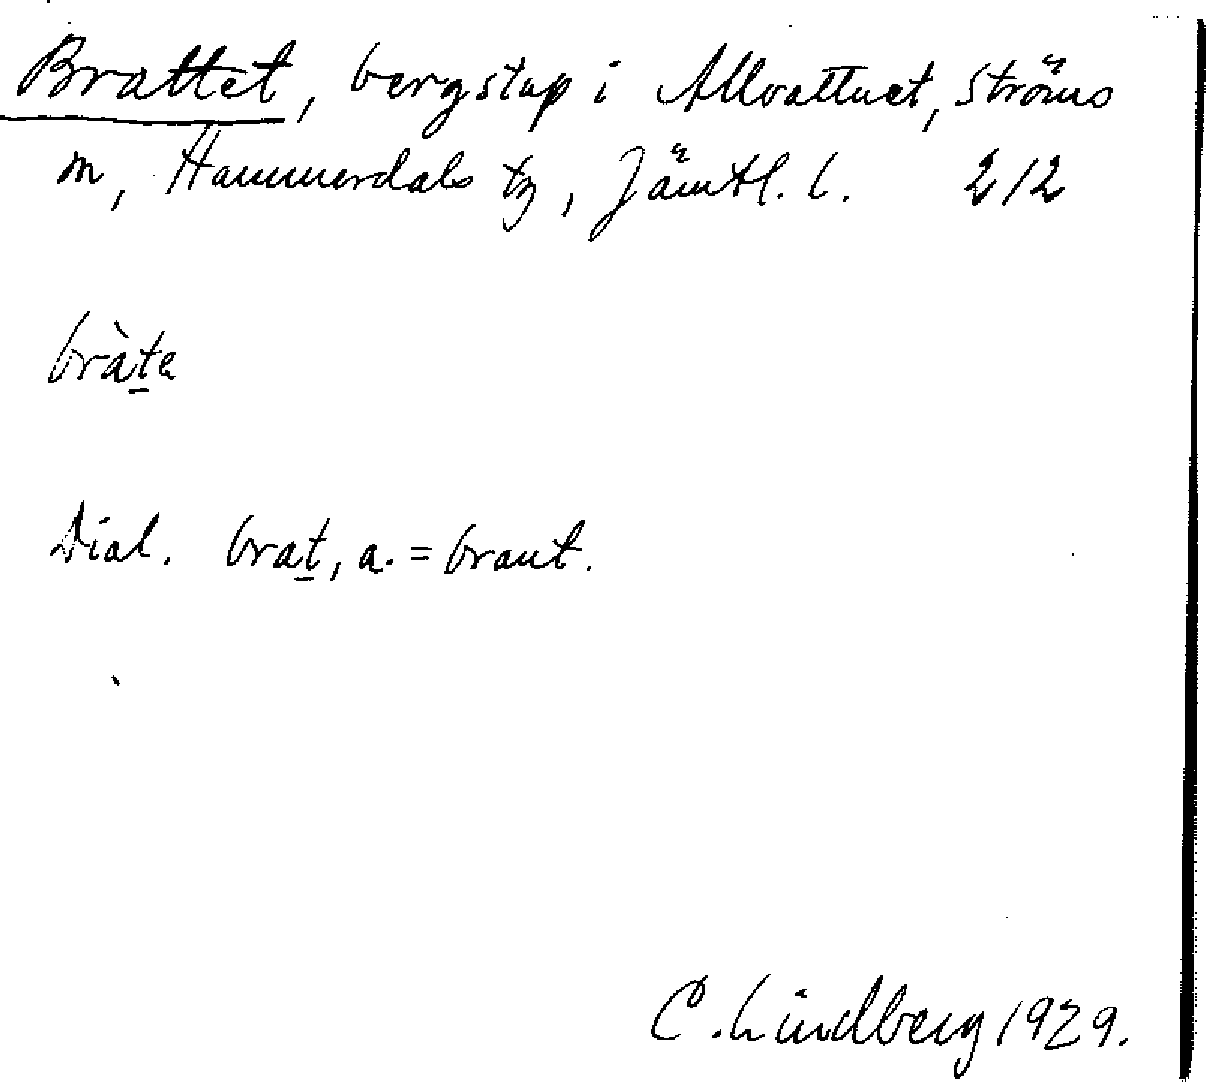 Brattet, bergstup i Allvattnet, Ströms
m, Hammerdals tg, Jämtl. l. 2/2
bràt̲e
Dial. brat̲, a. = brant.
C. Lindberg 1929.